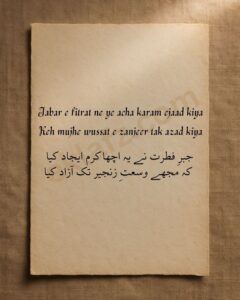 Jabar e fitrat ne ye acha karam ejaad kiya
Keh mujhe wussat e zanjeer tak azad kiya
جبرِ فطرت نے یہ اچھا کرم ایجاد کیا
کہ مجھے وسعتِ زنجیر تک آزاد کیا